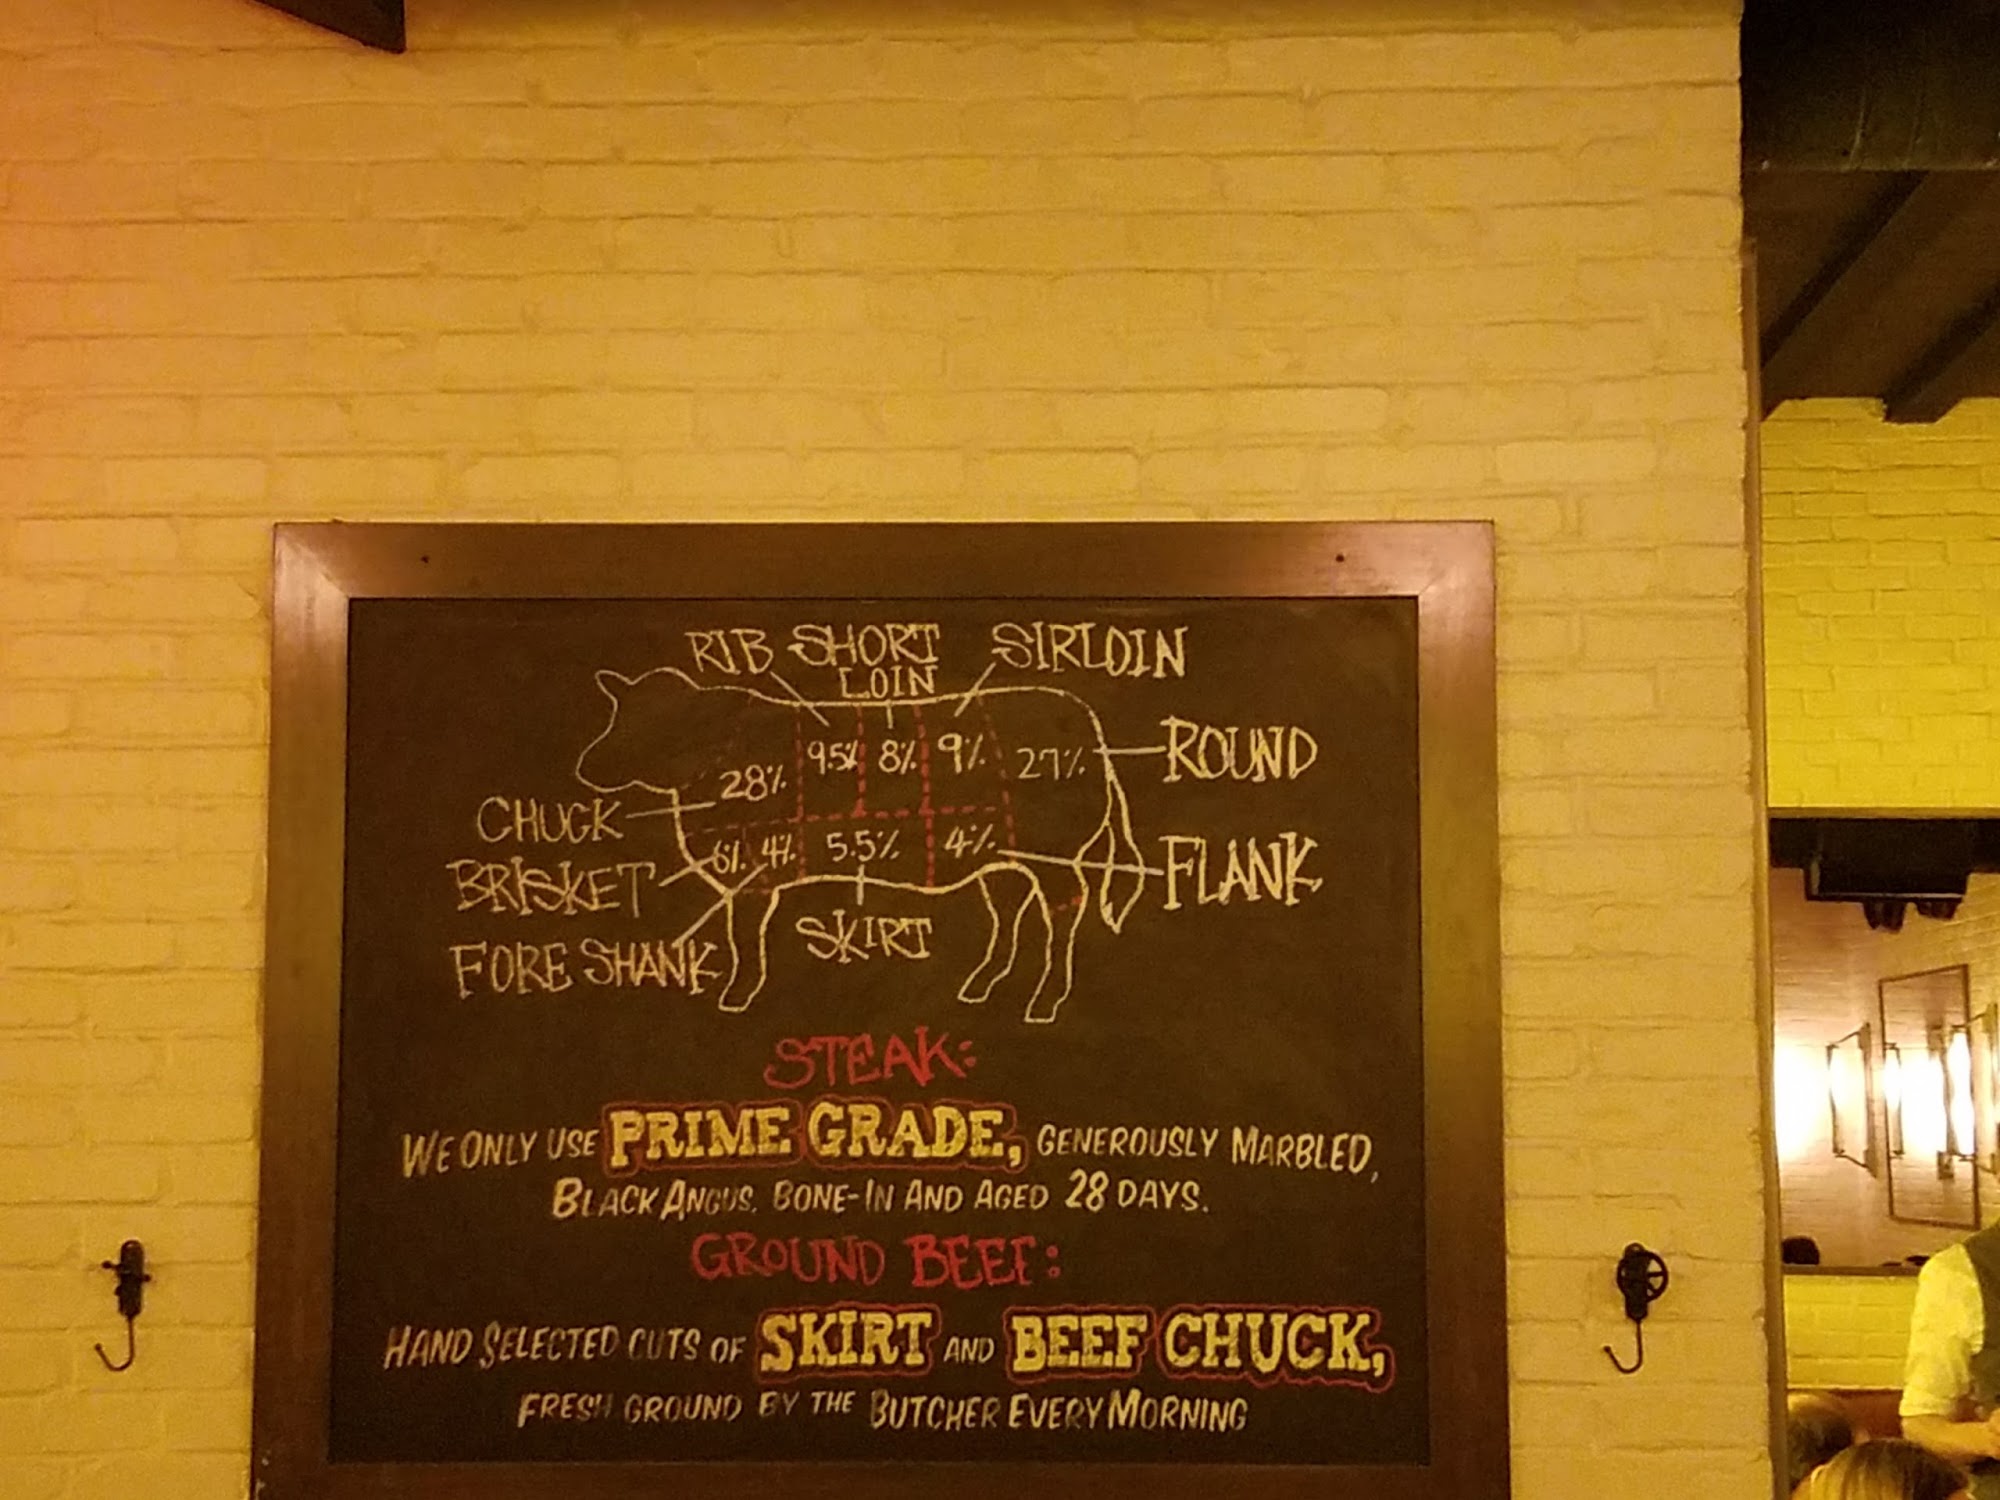 RIB SHORT LOIN SIRLOIN
9.5% 8% 9% 27% ROUND
28%
CHUCK
6% 4% 5.5% 4% FLANK
BRISKET
SKIRT
FORE SHANK
STEAK:
WE ONLY USE PRIME GRADE, GENEROUSLY MARBLED,
BLACK ANGUS, BONE-IN AND AGED 28 DAYS.
GROUND BEEF:
HAND SELECTED CUTS OF SKIRT AND BEEF CHUCK,
FRESH GROUND BY THE BUTCHER EVERY MORNING